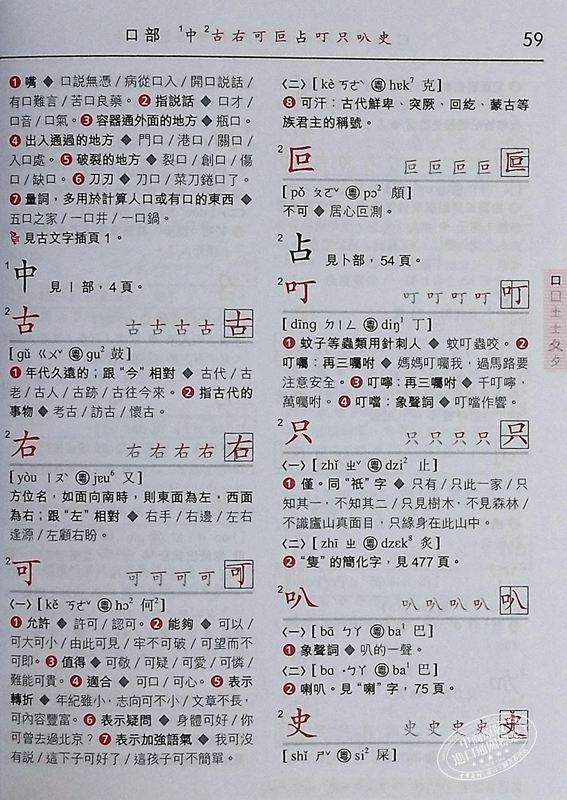 口部 ¹中 ²古右可叵占叮只叭史 59
❶ 嘴 ◆ 口說無憑/病從口入/開口說話/
有口難言/苦口良藥。❷ 指說話 ◆ 口才/
口音/口氣。❸ 容器通外面的地方 ◆ 瓶口。
❹ 出入通過的地方 ◆ 門口/港口/關口/
入口處。❺ 破裂的地方 ◆ 裂口/創口/傷
口/缺口。❻ 刀刃 ◆ 刀口/菜刀錈口了。
❼ 量詞,多用於計算人口或有口的東西 ◆
五口之家/一口井/一口鍋。
見古文字插頁 1。
¹中 見丨部,4 頁。
²古 古古古古古
[gǔ ㄍㄨˇ 粵gu² 鼓]
❶ 年代久遠的;跟“今”相對 ◆ 古代/古
老/古人/古跡/古往今來。❷ 指古代的
事物 ◆ 考古/訪古/懷古。
²右 右右右右右
[yòu ㄧㄡˋ 粵jɐu⁶ 又]
方位名,如面向南時,則東面為左,西面
為右;跟“左”相對 ◆ 右手/右邊/左右
逢源/左顧右盼。
²可 可可可可可
〈一〉[kě ㄎㄜˇ 粵hɔ² 何²]
❶ 允許 ◆ 許可/認可。❷ 能夠 ◆ 可以/
可大可小/由此可見/牢不可破/可望而不
可即。❸ 值得 ◆ 可敬/可疑/可愛/可憐/
難能可貴。❹ 適合 ◆ 可口/可心。❺ 表示
轉折 ◆ 年紀雖小,志向可不小/文章不長,
可內容豐富。❻ 表示疑問 ◆ 身體可好/你
可曾去過北京?❼ 表示加強語氣 ◆ 我可沒
有說/這下子可好了/這孩子可不簡單。
〈二〉[kè ㄎㄜˋ 粵hɐk⁷ 克]
❽ 可汗:古代鮮卑、突厥、回紇、蒙古等
族君主的稱號。
²叵 叵叵叵叵叵
[pǒ ㄆㄛˇ 粵pɔ² 頗]
不可 ◆ 居心叵測。
²占 見卜部,54 頁。
²叮 叮叮叮叮叮
[dīng ㄉㄧㄥ 粵diŋ¹ 丁]
❶ 蚊子等蟲類用針刺人 ◆ 蚊叮蟲咬。❷
叮囑:再三囑咐 ◆ 媽媽叮囑我,過馬路要
注意安全。❸ 叮嚀:再三囑咐 ◆ 千叮嚀,
萬囑咐。❹ 叮噹:象聲詞 ◆ 叮噹作響。
²只 只只只只只
〈一〉[zhǐ ㄓˇ 粵dzi² 止]
❶ 僅。同“祇”字 ◆ 只有/只此一家/只
知其一,不知其二/只見樹木,不見森林/
不識廬山真面目,只緣身在此山中。
〈二〉[zhī ㄓ 粵dzɛk⁸ 炙]
❷ “隻”的簡化字,見 477 頁。
²叭 叭叭叭叭叭
〈一〉[bā ㄅㄚ 粵ba¹ 巴]
❶ 象聲詞 ◆ 叭的一聲。
〈二〉[ba ·ㄅㄚ 粵ba¹ 巴]
❷ 喇叭。見“喇”字,75 頁。
²史 史史史史史
[shǐ ㄕˇ 粵si² 屎]
口
囗
土
士
夊
夕